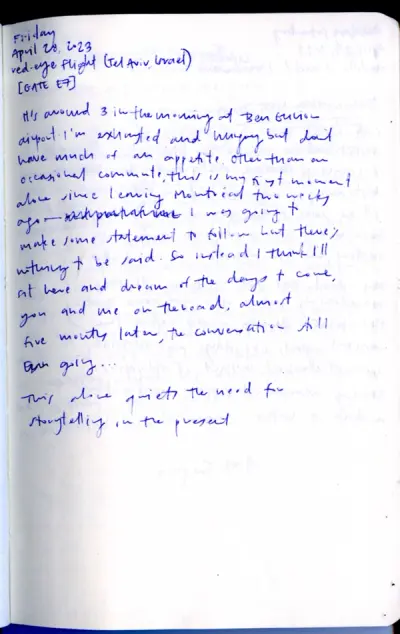 Friday
April 28, 2023
red-eye flight (Tel Aviv, Israel)
[GATE E7]
It's around 3 in the morning at Ben Gurion
airport. I'm exhausted and hungry but don't
have much of an appetite. Other than an
occasional commute, this is my first moment
alone since leaving Montréal two weeks
ago — I was going to
make some statement to follow but there's
nothing to be said. So instead I think I'll
sit here and dream of the days to come,
you and me on the road, almost
five months later, the conversation still
going...
This alone quiets the need for
storytelling in the present